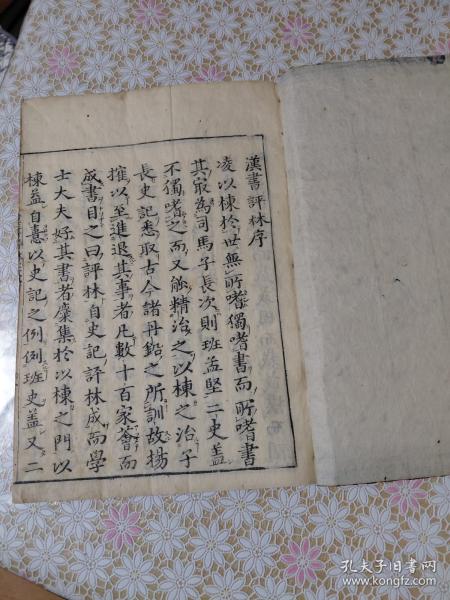 漢書評林序
凌以棟於世無所嗜獨嗜書而所嗜書
其㝡為司馬子長次則班孟堅二史盖
不獨嗜之而又能精治之以棟之治子
長史記悉取古今諸丹鉛之所訓故揚
搉以至進退其事者凡數十百家薈而
成書目之曰評林自史記評林成而學
士大夫好其書者麕集於以棟之門以
棟益自憙以史記之例例班史盖又二
孔夫子旧书网
www.kongfz.com